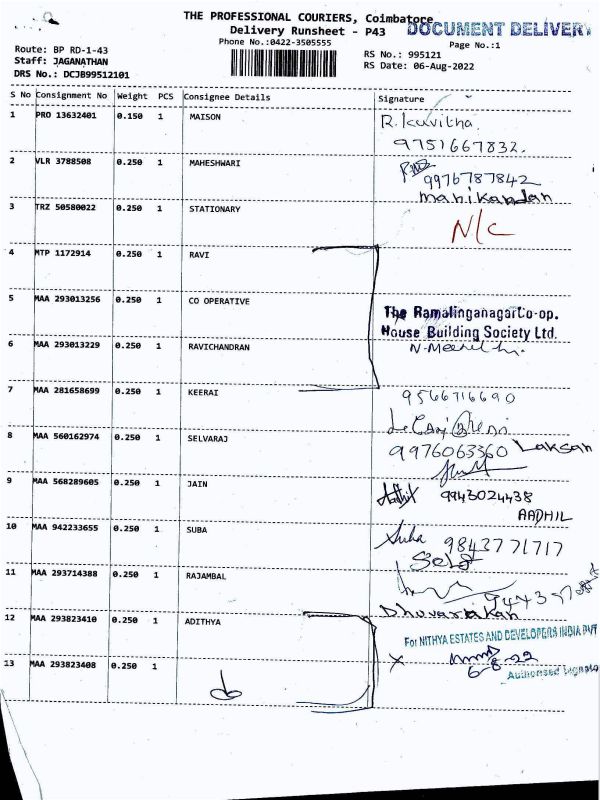 THE PROFESSIONAL COURIERS, Coimbatore
DOCUMENT DELIVERY
Delivery Runsheet - P43
Phone No.:0422-3505555
Page No.:1
Route: BP RD-1-43
Staff: JAGANATHAN
DRS No.: DCJB99512101
RS No.: 995121
RS Date: 06-Aug-2022
S No Consignment No Weight PCS Consignee Details Signature
1 PRO 13632401 0.150 1 MAISON R. Kavitha.
9751667832.
2 VLR 3788508 0.250 1 MAHESHWARI
9976787842
manikandan
3 TRZ 50580022 0.250 1 STATIONARY N/C
4 MTP 1172914 0.250 1 RAVI
5 MAA 293013256 0.250 1 CO OPERATIVE The Ramalinganagar Co-op.
House Building Society Ltd.
6 MAA 293013229 0.250 1 RAVICHANDRAN
7 MAA 281658699 0.250 1 KEERAI 9566716690
8 MAA 560162974 0.250 1 SELVARAJ 9976063360 Laksan
9 MAA 568289605 0.250 1 JAIN 9943024438
AADHIL
10 MAA 942233655 0.250 1 SUBA Suba 9843771717
Self
11 MAA 293714388 0.250 1 RAJAMBAL
Dhuvarakan
12 MAA 293823410 0.250 1 ADITHYA
For NITHYA ESTATES AND DEVELOPERS INDIA PVT
13 MAA 293823408 0.250 1 X
6-8-22
Authorised Signato